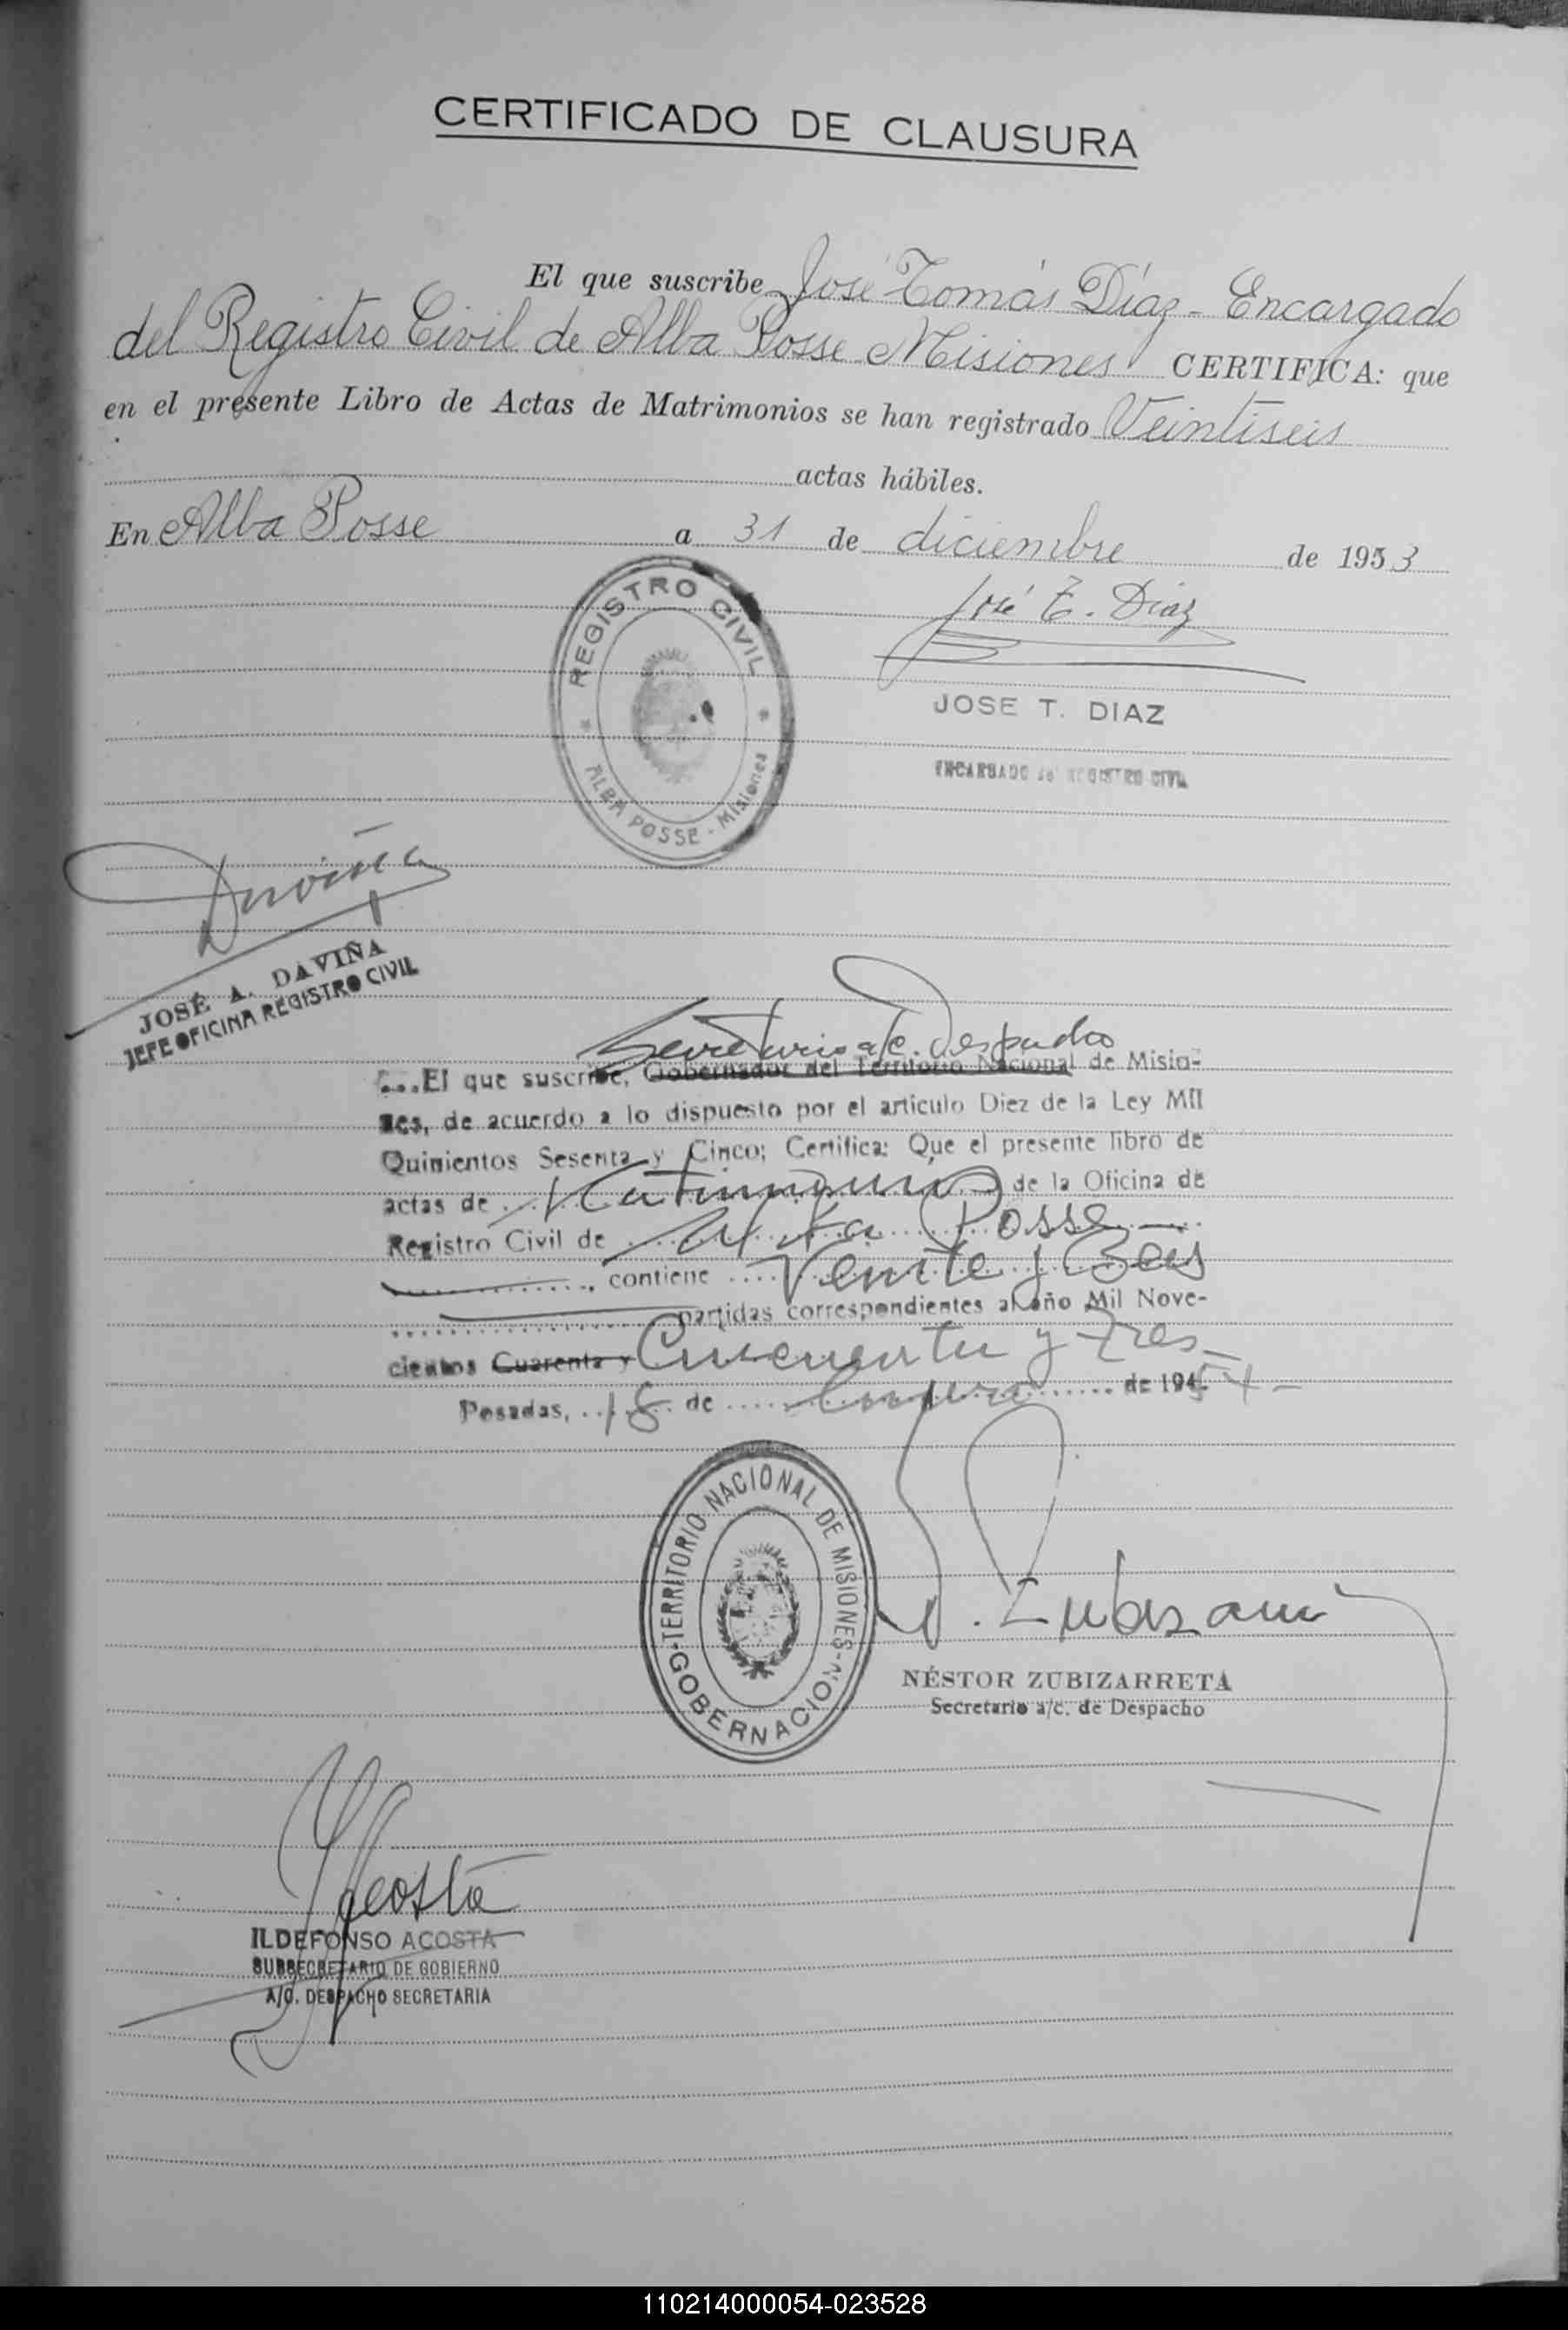 CERTIFICADO DE CLAUSURA
El que suscribe José Tomás Díaz - Encargado
del Registro Civil de Alba Posse Misiones CERTIFICA: que
en el presente Libro de Actas de Matrimonios se han registrado Veintiseis
actas hábiles.
En Alba Posse a 31 de diciembre de 1953
José T. Díaz
REGISTRO CIVIL
ALBA POSSE - Misiones
JOSE T. DIAZ
ENCARGADO REGISTRO CIVIL
Daviña
JOSÉ A. DAVIÑA
JEFE OFICINA REGISTRO CIVIL
Secretario a/c. Despacho
...El que suscribe, Gobernador del Territorio Nacional de Misio-
nes, de acuerdo a lo dispuesto por el artículo Diez de la Ley Mil
Quinientos Sesenta y Cinco; Certifica: Que el presente libro de
actas de Matrimonios de la Oficina de
Registro Civil de Alba Posse
contiene Veinte y Seis
partidas correspondientes al año Mil Nove-
cientos Cuarenta y Cincuenta y tres
Posadas, 18 de Enero de 1954-
TERRITORIO NACIONAL DE MISIONES
GOBERNACION
NÉSTOR ZUBIZARRETA
Secretario a/c. de Despacho
Acosta
ILDEFONSO ACOSTA
SUBSECRETARIO DE GOBIERNO
A/C. DESPACHO SECRETARIA
110214000054-023528